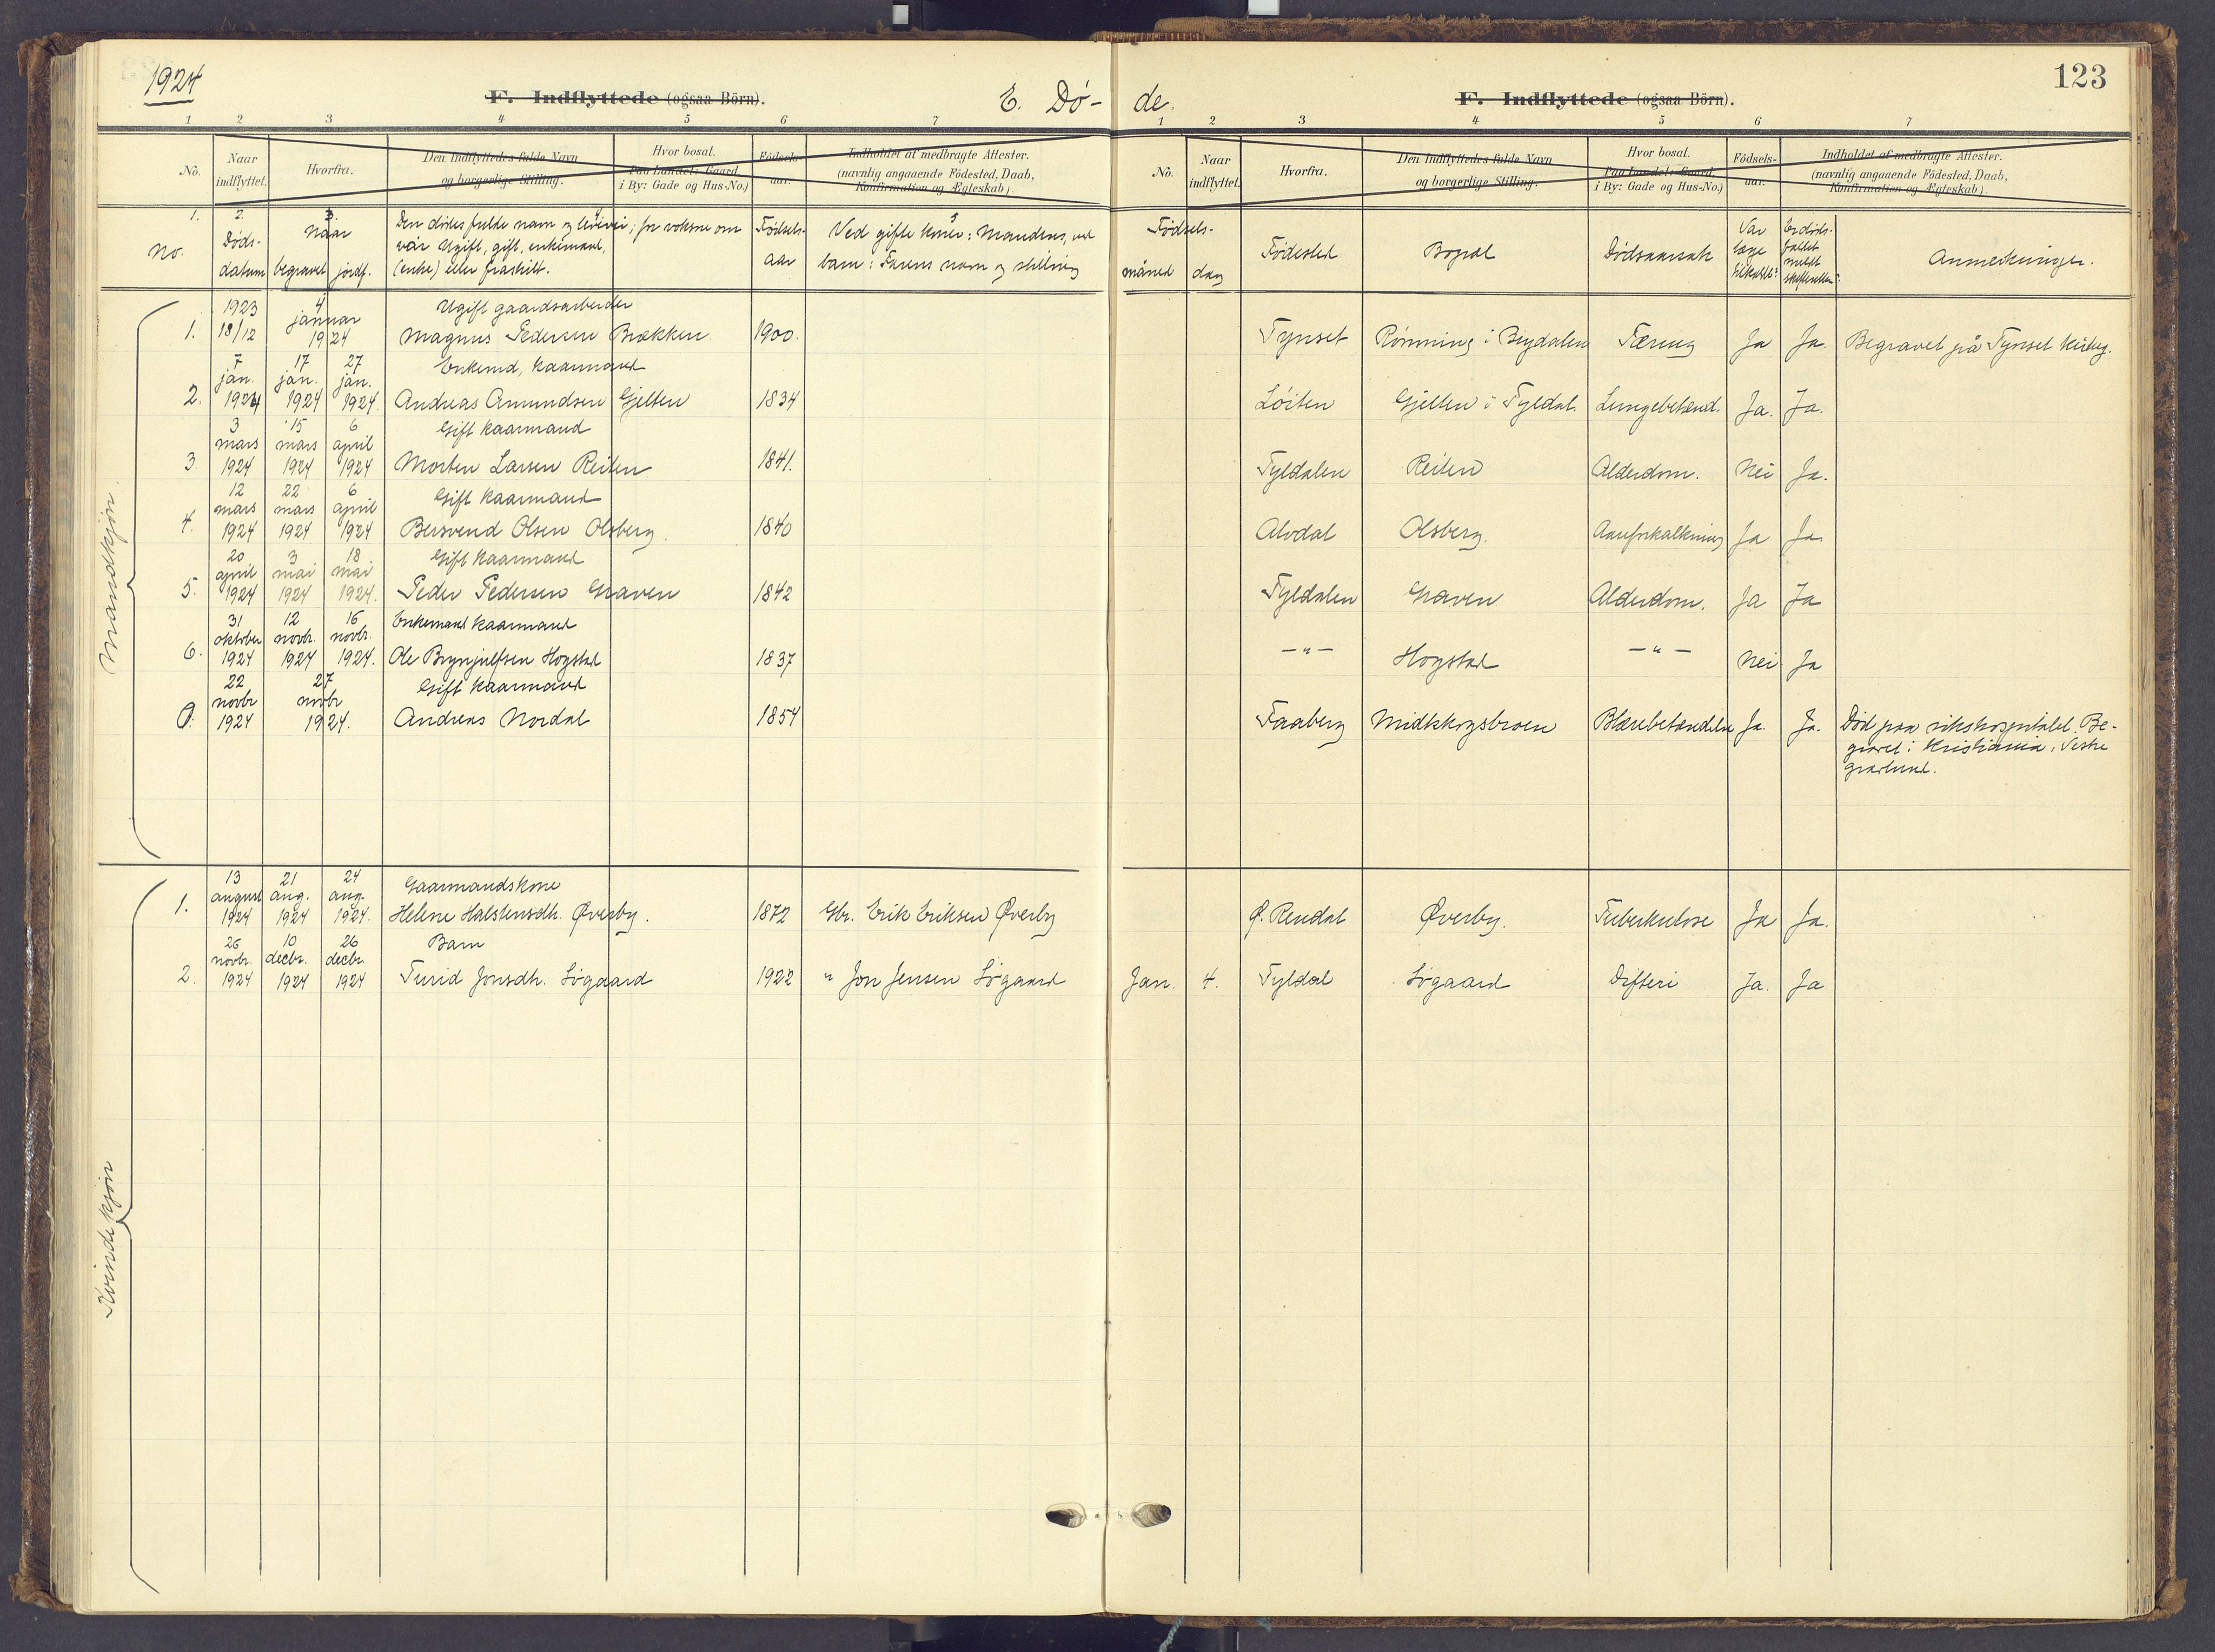 1924
F. Indflyttede (ogsaa Börn).
E. Dö-
1 2 3 4 5 6 7
No. Naar indflyttet. Hvorfra. Den Indflyttedes fulde Navn og borgerlige Stilling. Hvor bosat. Paa Landet: Gaard, i By: Gade og Hus-No.) Födsels-aar. Indholdet af medbragte Attester. (navnlig angaaende Födested, Daab, Konfirmation og Ægteskab).
1. 2. 3. 4 5
No. Döds-datum Naar begravet jordf. Den dödes fulde navn og levevei; for voksne om var Ugift, gift, enkemand, (enke) eller fraskilt. Födsels-aar Ved gifte koner: Mandens, ved barn: Farens navn og stilling
Mandkjön.
1. 1923 18/12 4 januar 1924 Ugift gaardsarbeider Magnus Pedersen Brækken 1900.
2. 7 jan. 1924 17 jan. 1924 27 jan. 1924. Enkemd, kaarmand Andreas Amundsen Gjelten 1834
3. 3 mars 1924 15 mars 1924 6 april 1924 Gift kaarmand Morten Larsen Reiten 1841.
4. 12 mars 1924 22 mars 1924 6 april 1924 Gift kaarmand Bersvend Olsen Olsberg. 1840
5. 20 april 1924 3 mai 1924 18 mai 1924. Gift kaarmand Peder Pedersen Graven 1842
6. 31 oktober 1924 12 novbr. 1924 16 novbr. 1924. Enkemand kaarmand Ole Brynjulfsen Hogstad 1837
0. 22 novbr 1924 27 novbr 1924. Gift kaarmand Andreas Nordal 1854
Kvindekjön
1. 13 august 1924 21 aug. 1924 24 aug. 1924. Gaarmandskone Helene Halstensdh. Øverby. 1872 Gbr. Erik Eriksen Øverby
2. 26 novbr. 1924 10 decbr. 1924 26 decbr. 1924 Barn Turid Jonsdh. Lögaard 1922 " Jon Jensen Lögaard
123
de.
F. Indflyttede (ogsaa Börn).
1 2 3 4 5 6 7
No. Naar indflyttet. Hvorfra. Den Indflyttedes fulde Navn og borgerlige Stilling. Hvor bosat. Paa Landet: Gaard, i By: Gade og Hus-No.) Födsels-aar. Indholdet af medbragte Attester. (navnlig angaaende Födested, Daab, Konfirmation og Ægteskab).
Födsels- måned dag Födested Bopæl Dödsaarsak Var læge tilkaldt? Er döds-faldet meldt skifteretten? Anmerkninger.
Tynset Rönning i Brydalen Tæring Ja Ja. Begravet på Tynset kirkeg.
Löiten Gjelten i Tyldal. Lungebetænd. Ja. Ja.
Tyldalen Reiten Alderdom. Nei Ja.
Alvdal Olsberg. Aareforkalkning Ja Ja
Tyldalen Graven Alderdom. Ja Ja
— " — Hogstad — " — Nei Ja
Faaberg Midtskogsbroen Blærebetændelse Ja. Ja. Död paa rikshospitalet. Be-
gravet i Kristiania, Vestre
gravlund.
Ø. Rendal Øverby. Tuberkulose Ja Ja.
Jan. 4. Tyldal Lögaard Difteri Ja. Ja